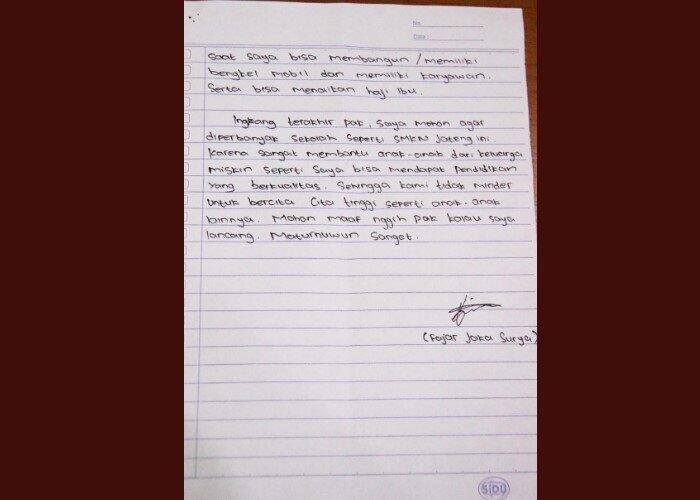 No.
Date :
saat saya bisa membangun / memiliki
bengkel mobil dan memiliki karyawan.
Serta bisa menaikan haji Ibu.
Ingkang terakhir pak, saya mohon agar
diperbanyak sekolah seperti SMKN Jateng ini
karena sangat membantu anak-anak dari keluarga
miskin seperti saya bisa mendapat pendidikan
yang berkualitas. Sehingga kami tidak minder
untuk bercita cita tinggi seperti anak-anak
lainnya. Mohon maaf nggih pak kalau saya
lancang. Maturnuwun sanget.
(Fajar Jaka Surya)
SIDU